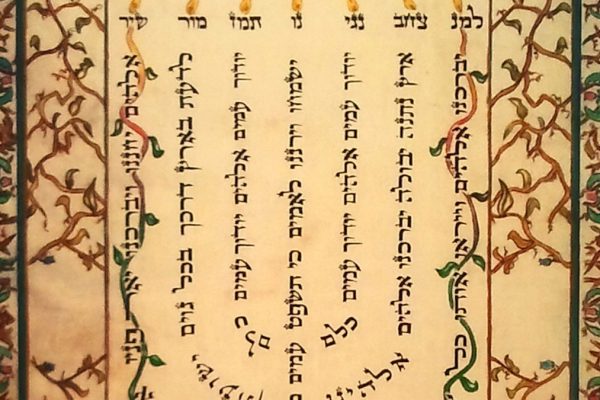 למנ צחב נגי נו תמז מור שיר
יברכנו אלהים וייראו אותו כל
ארץ נתנה יבולה יברכנו אלהים
יודוך עמים אלהים יודוך עמים כלם
ישמחו וירננו לאמים כי תשפט עמים
יודוך עמים אלהים יודוך עמים
לדעת בארץ דרכך בכל גוים
אלהים יחננו ויברכנו יאר פניו